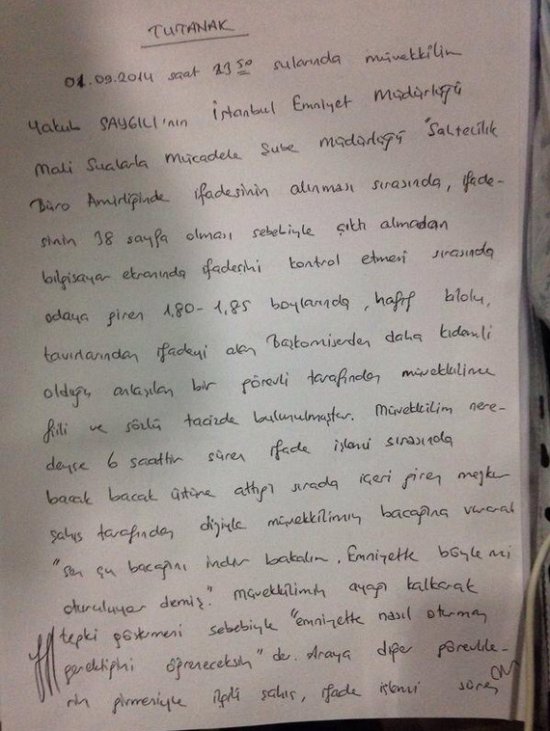 TUTANAK
01.09.2014 saat 23 50 sularında müvekkilim
Yakub SAYGILI'nın İstanbul Emniyet Müdürlüğü
Mali Suçlarla Mücadele Şube Müdürlüğü "Sahtecilik
Büro Amirliğinde ifadesinin alınması sırasında, ifade-
sinin 38 sayfa olması sebebiyle çıktı almadan
bilgisayar ekranında ifadesini kontrol etmesi sırasında
odaya giren 1,80-1,85 boylarında, hafif kilolu,
tavırlarından ifadeyi alan Başkomiserden daha kıdemli
olduğu anlaşılan bir görevli tarafından müvekkilime
fiili ve sözlü tacizde bulunulmuştur. Müvekkilim nere-
deyse 6 saattir süren ifade işlemi sırasında
bacak bacak üstüne attığı sırada içeri giren mezkur
şahıs tarafından diziyle müvekkilimin bacağına vurarak
"sen şu bacağını indir bakalım. Emniyette böyle mi
oturuluyor demiş." Müvekkilimin ayağı kalkarak
tepki göstermesi sebebiyle "emniyette nasıl oturman
gerektiğini öğreneceksin" der. Araya diğer görevlile-
rin girmesiyle ilgili şahıs, ifade işlemi süren